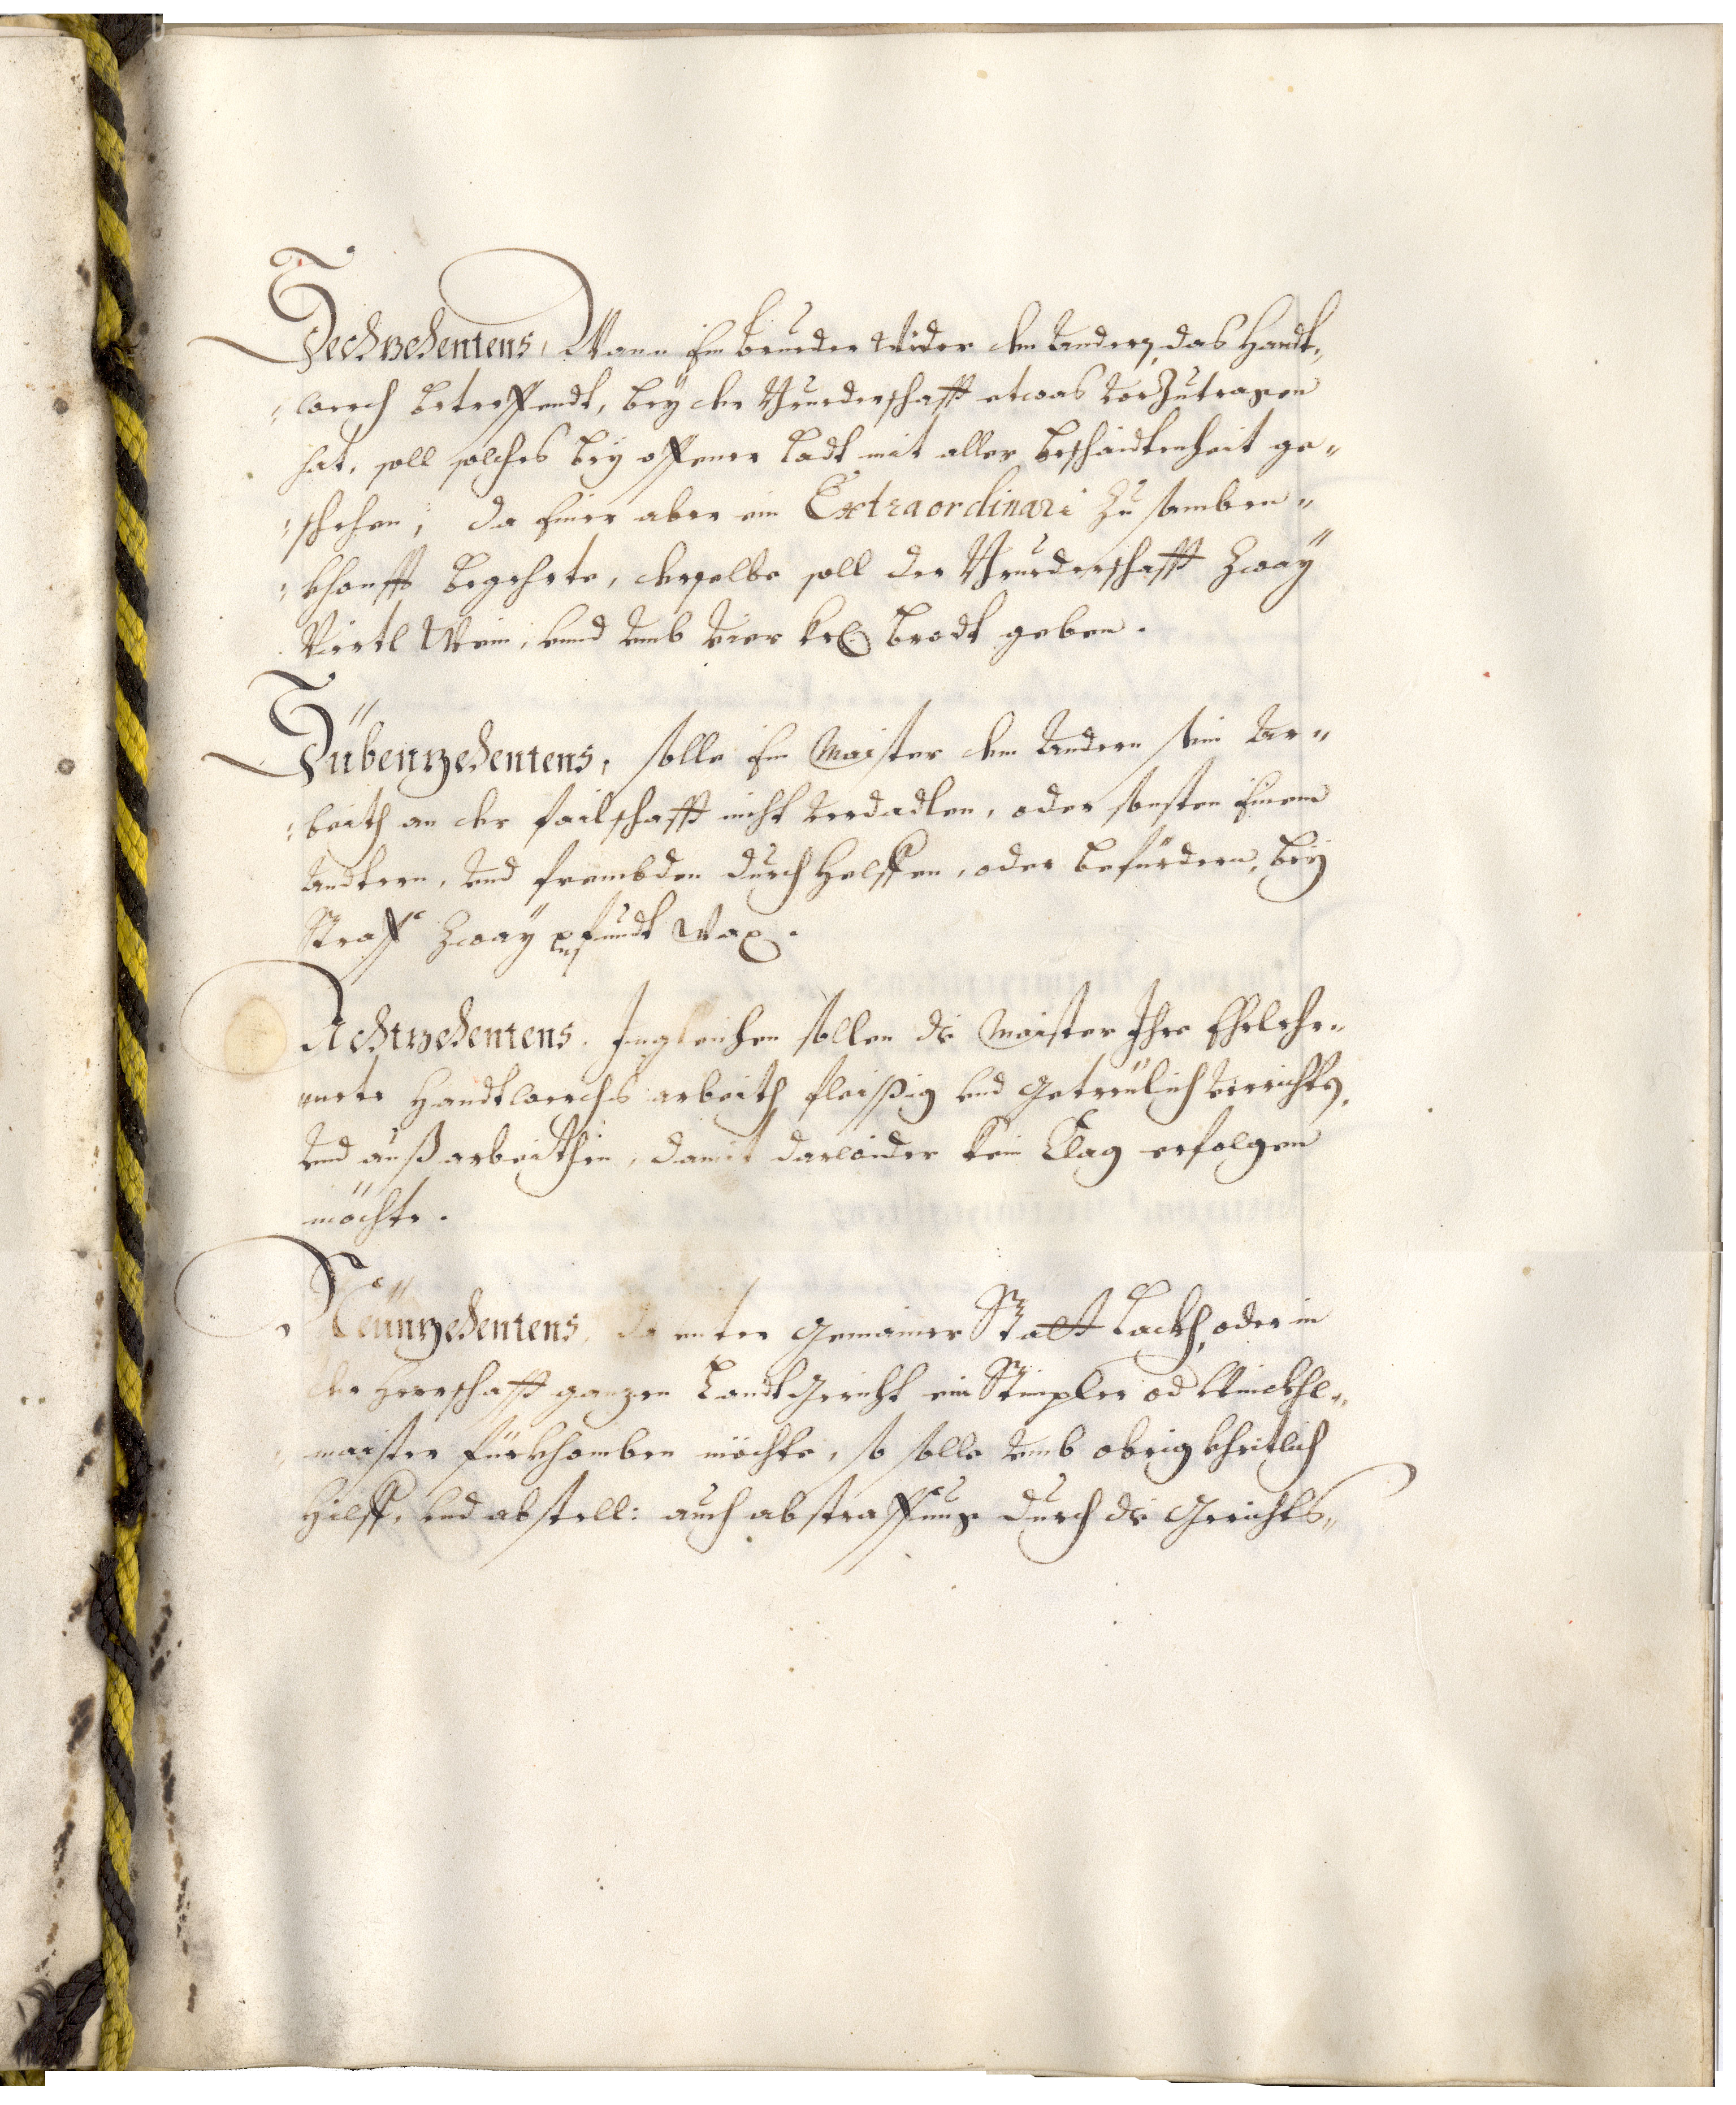 Sechzehentens, Wann Ein brueder wider den Andern, das Handt„
„werch betreffendt, bey der Bruederschafft etwas vorzutragen
hat, soll solches bey offener Ladt mit aller beschaidtenheit ge„
„schehen; da Einer aber ein Extraordinari Zusamben„
„khonfft begehrte, derselbe soll der Bruederschafft Zway
Viertl Wein, vnnd vmb vier kr. brodt geben.
Sübenzehentens, solle Ein Maister dem Andern sein Ar„
„beith an der failschafft nicht verdadlen, oder sonsten Einem
Andtern, vnd frembden durch Helffen, oder befürdern, bey
Straff Zway pfundt Wax.
Achtzehentens. Ingleichen sollen die Maister Ihre Ehrlehr„
nete Handtwerchs arbeith fleissig vnd getreulich verrichten,
vnd außarbeithen, damit darwider kein Clag erfolgen
möchte.
Neünzehentens, da unter gemainer Statt Lackh, oder in
der Herrschafft ganzen Landtgericht ein Stimpler od Winckhl„
„maister fürkhomben möchte, so solle vmb obrigkheitlich
Hilff, vnd abstell: auch abstraffung durch die Gerichts„